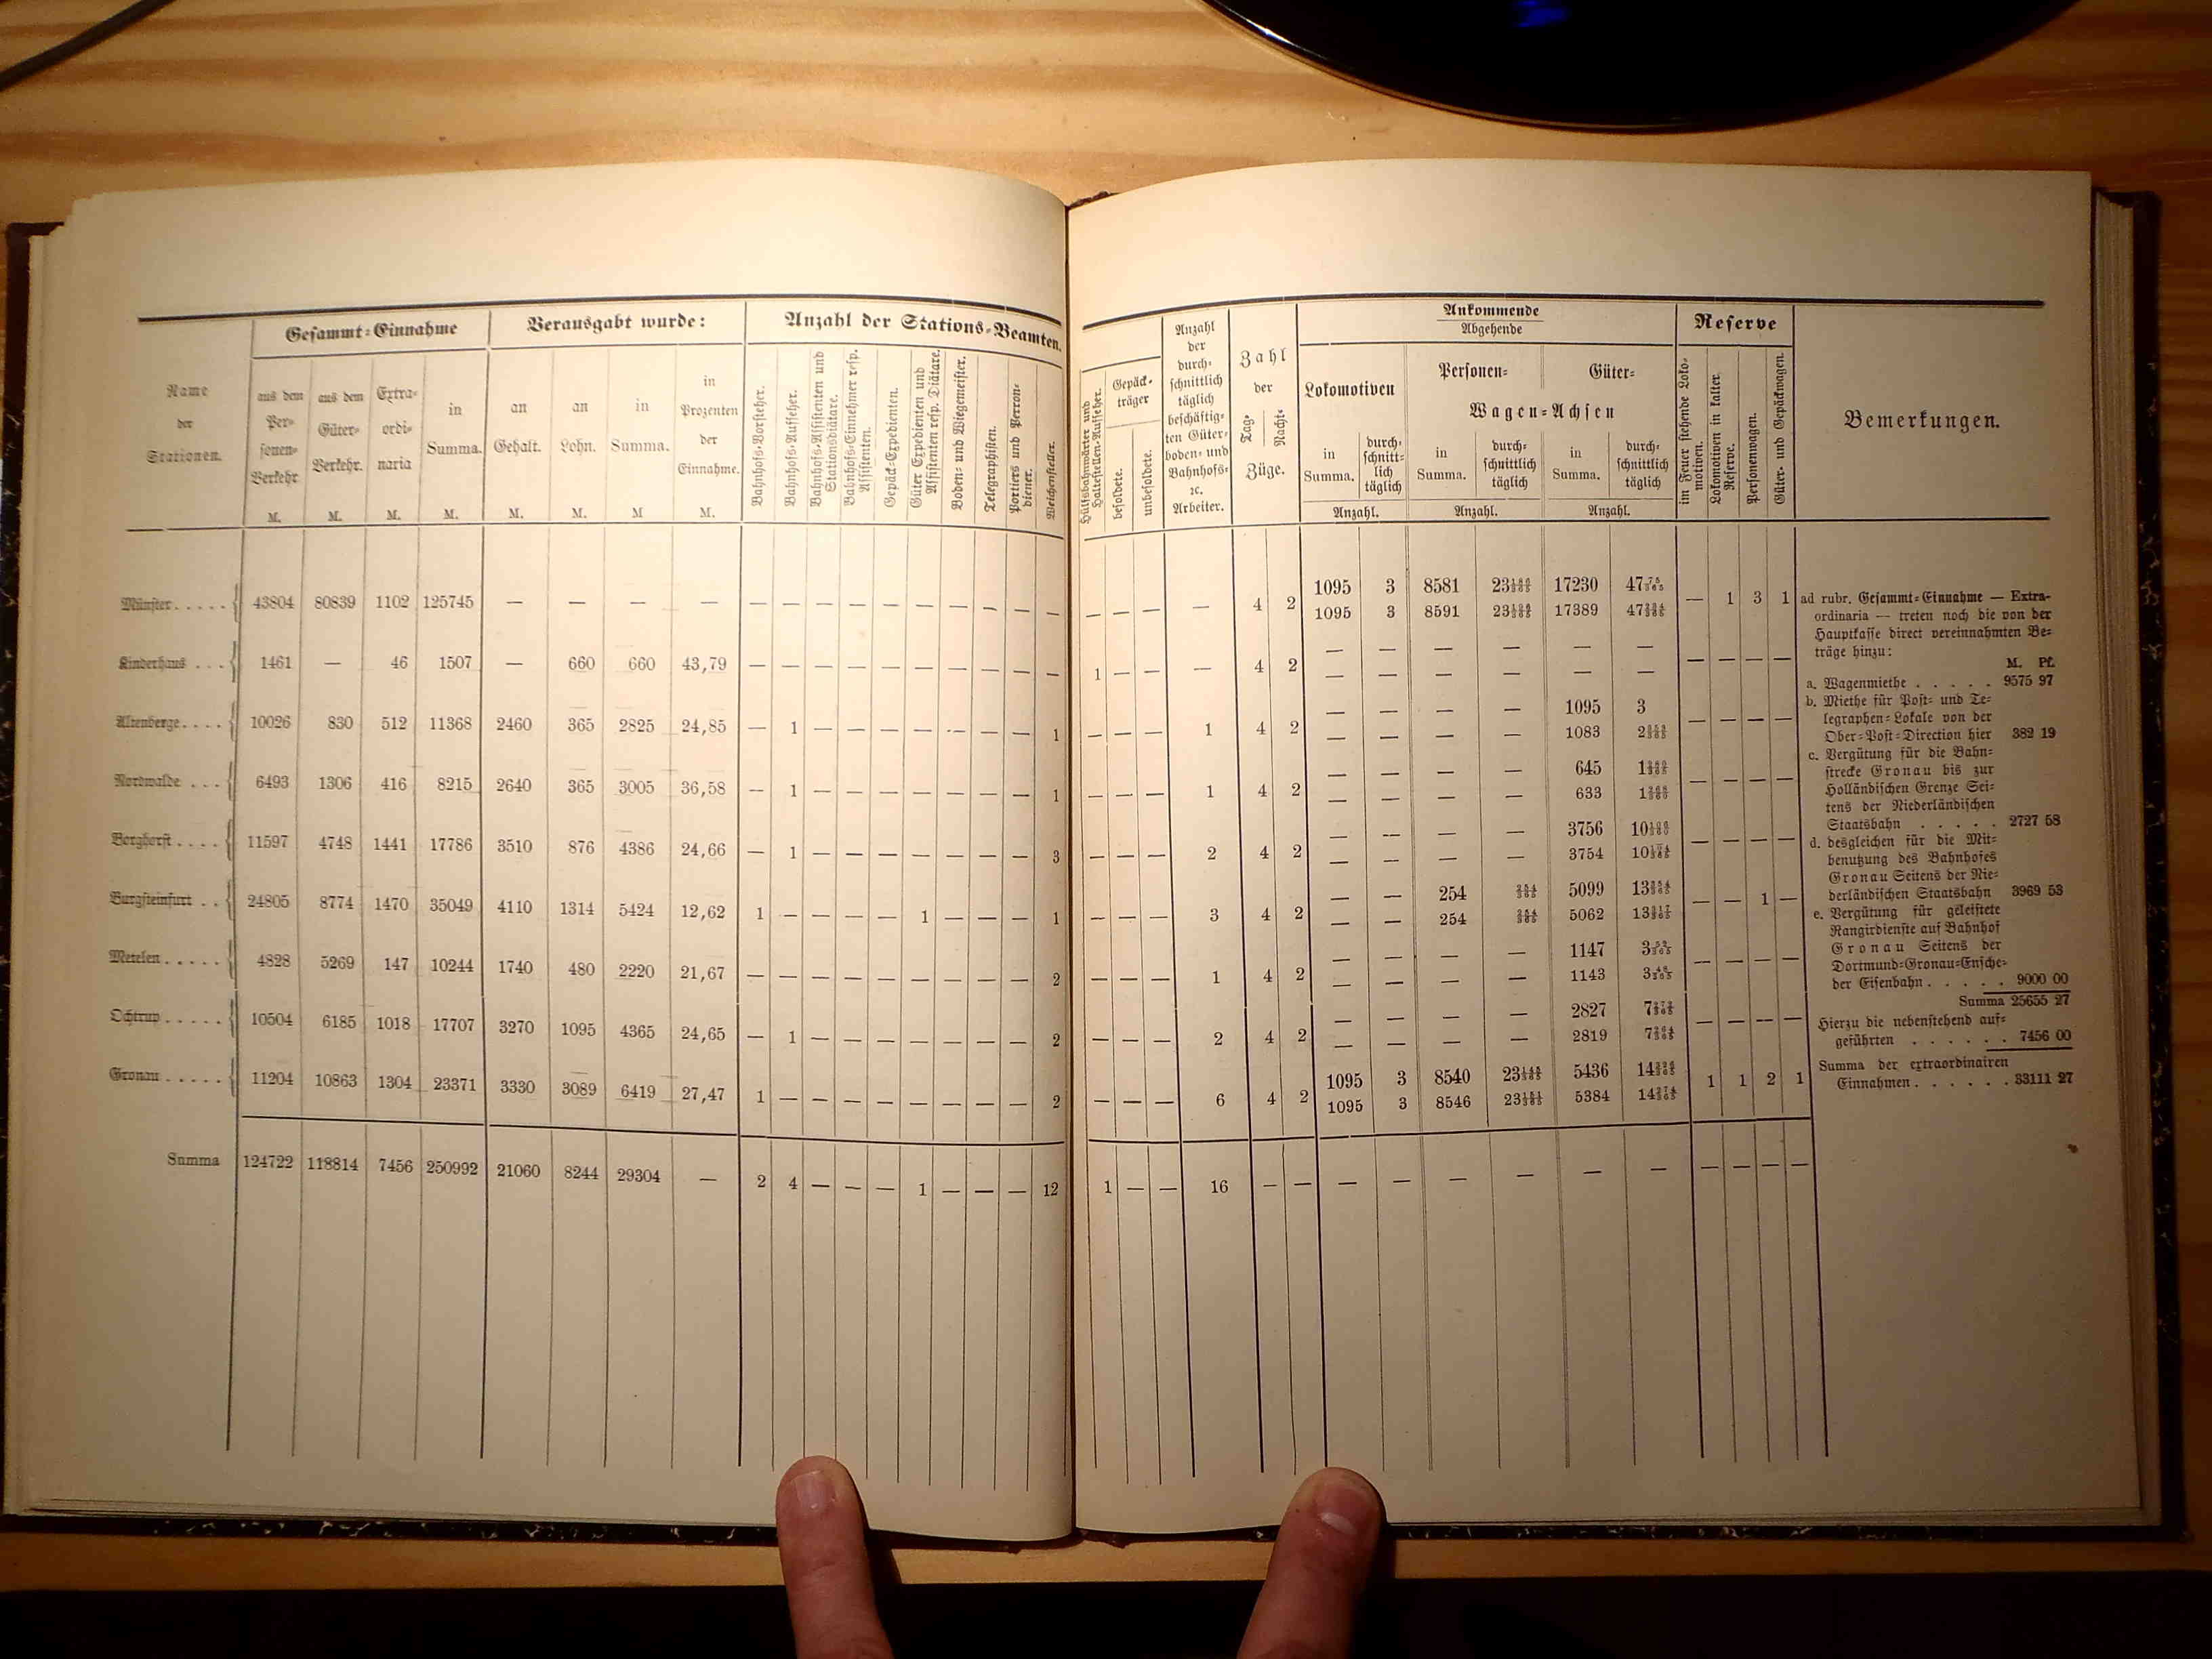 Name der Stationen.
Gesammt=Einnahme
aus dem Personen-Verkehr M.
aus dem Güter-Verkehr. M.
Extraordinaria M.
in Summa. M.
Verausgabt wurde:
an Gehalt. M.
an Lohn. M.
in Summa. M
in Prozenten der Einnahme. M.
Anzahl der Stations=Beamten.
Bahnhofs-Vorsteher.
Bahnhofs-Aufseher.
Bahnhofs-Assistenten und Stationsdiätare.
Bahnhofs-Einnehmer resp. Assistenten.
Gepäck-Expedienten.
Güter Expedienten und Assistenten resp. Diätare.
Boden- und Wiegemeister.
Telegraphisten.
Portiers und Perrondiener.
Weichensteller.
Hülfsbahnwärter und Haltestellen-Aufseher.
Gepäckträger
besoldete.
unbesoldete.
Anzahl der durchschnittlich täglich beschäftigten Güterboden- und Bahnhofs- ꝛc. Arbeiter.
Zahl der Tag- Nacht- Züge.
Ankommende
Abgehende
Lokomotiven
Personen= Güter=
Wagen=Achsen
in Summa. durchschnittlich täglich
in Summa. durchschnittlich täglich
in Summa. durchschnittlich täglich
Anzahl. Anzahl. Anzahl.
Reserve
im Feuer stehende Lokomotiven.
Lokomotiven in kalter Reserve.
Personenwagen.
Güter- und Gepäckwagen.
Bemerkungen.
Münster..... 43804 80839 1102 125745 — — — — — — — — — — — — — — — — — — 4 2 1095 3 8581 23 17230 47 — 1 3 1
1095 3 8591 23 17389 47
Kinderhaus ... 1461 — 46 1507 — 660 660 43,79 — — — — — — — — — — 1 — — — 4 2 — — — — — — — — — —
— — — — — —
Altenberge.... 10026 830 512 11368 2460 365 2825 24,85 — 1 — — — — — — — 1 — — — 1 4 2 — — — — 1095 3 — — — —
— — — — 1083 2
Nordwalde ... 6493 1306 416 8215 2640 365 3005 36,58 — 1 — — — — — — — 1 — — — 1 4 2 — — — — 645 1 — — — —
— — — — 633 1
Borghorst.... 11597 4748 1441 17786 3510 876 4386 24,66 — 1 — — — — — — — 3 — — — 2 4 2 — — — — 3756 10 — — — —
— — — — 3754 10
Burgsteinfurt .. 24805 8774 1470 35049 4110 1314 5424 12,62 1 — — — — 1 — — — 1 — — — 3 4 2 — — 254 5099 13 — — 1 —
— — 254 5062 13
Metelen..... 4828 5269 147 10244 1740 480 2220 21,67 — — — — — — — — — 2 — — — 1 4 2 — — — — 1147 3 — — — —
— — — — 1143 3
Ochtrup..... 10504 6185 1018 17707 3270 1095 4365 24,65 — 1 — — — — — — — 2 — — — 2 4 2 — — — — 2827 7 — — — —
— — — — 2819 7
Gronau..... 11204 10863 1304 23371 3330 3089 6419 27,47 1 — — — — — — — — 2 — — — 6 4 2 1095 3 8540 23 5436 14 1 1 2 1
1095 3 8546 23 5384 14
Summa 124722 118814 7456 250992 21060 8244 29304 — 2 4 — — — 1 — — — 12 1 — — 16 — — — — — — — — — — — —
ad rubr. Gesammt=Einnahme — Extra=
ordinaria — treten noch die von der
Hauptkasse direct vereinnahmten Be=
träge hinzu:
M. Pf.
a. Wagenmiethe ..... 9575 97
b. Miethe für Post= und Te=
legraphen=Lokale von der
Ober=Post=Direction hier 382 19
c. Vergütung für die Bahn=
strecke Gronau bis zur
Holländischen Grenze Sei=
tens der Niederländischen
Staatsbahn ..... 2727 58
d. desgleichen für die Mit=
benutzung des Bahnhofes
Gronau Seitens der Nie=
derländischen Staatsbahn 3969 53
e. Vergütung für geleistete
Rangirdienste auf Bahnhof
Gronau Seitens der
Dortmund=Gronau=Ensche=
der Eisenbahn..... 9000 00
Summa 25655 27
Hierzu die nebenstehend auf=
geführten ...... 7456 00
Summa der extraordinairen
Einnahmen...... 33111 27